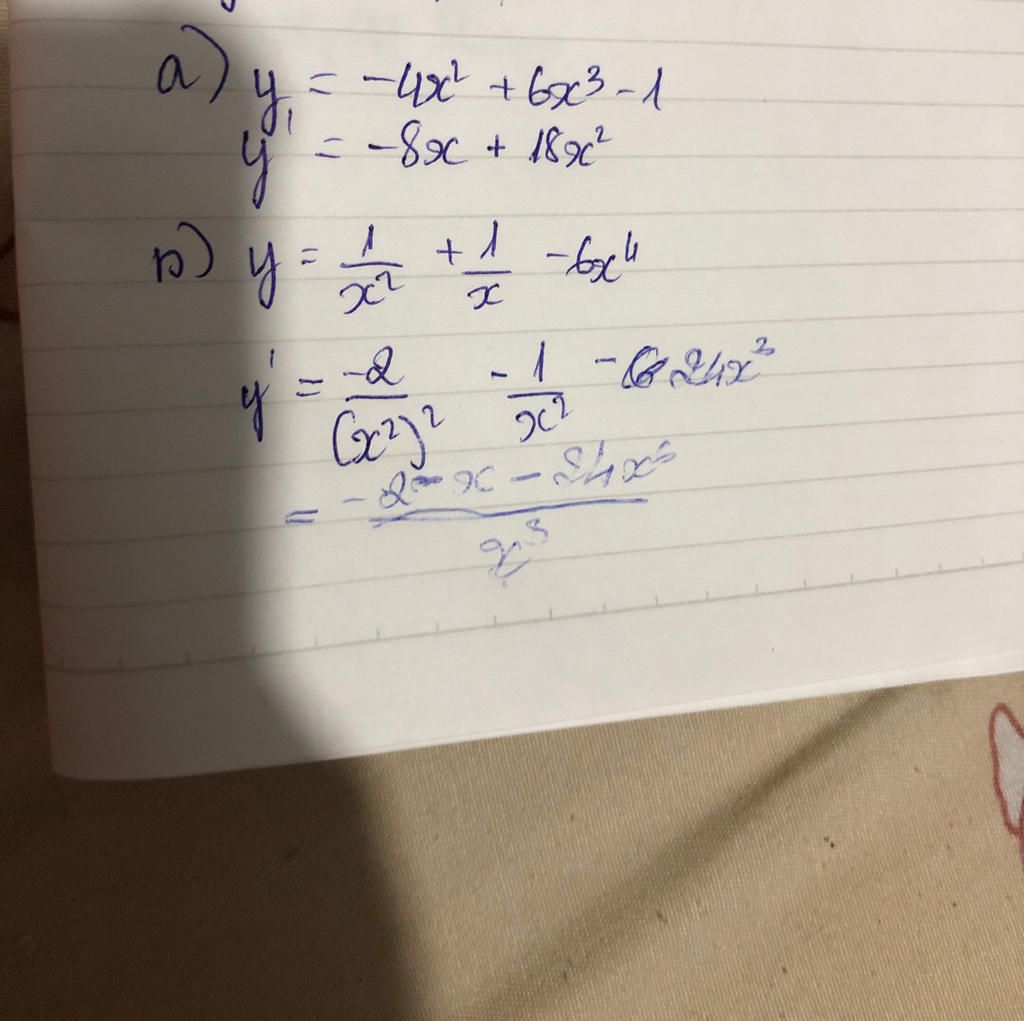 a) y = -4x² + 6x³ - 1
y' = -8x + 18x²
b) y = 1/x² + 1/x - 6x⁴
y' = -2/(x²)² - 1/x² - 24x³
= (-2 - x - 24x⁶)/x³